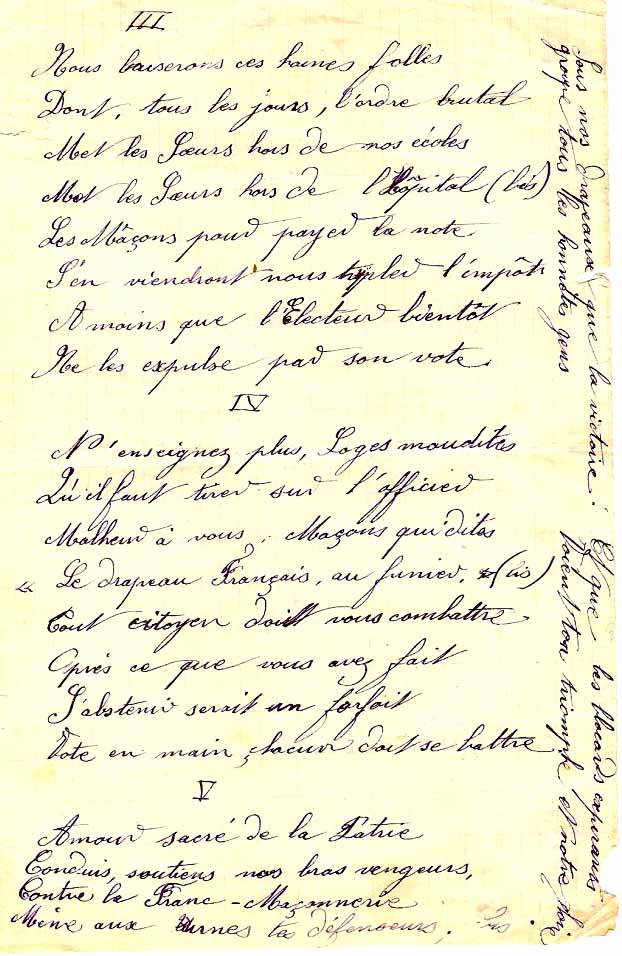 III
Nous baiserons ces haines folles
Dont, tous les jours, l'ordre brutal
Met les Sœurs hors de nos écoles
Met les Sœurs hors de l'Hôpital (bis)
Les Mâçons pour payer la note
S'en viendront nous tripler l'impôt
A moins que l'Electeur bientôt
Ne les expulse par son vote.
IV
N'enseignez plus, Loges maudites
Qu'il faut tirer sur l'officier
Malheur à vous, Maçons qui dites
« Le drapeau Français, au fumier. » (bis)
Tout citoyen doit vous combattre
Après ce que vous avez fait
S'abstenir serait un forfait
Vote en main, chacun doit se battre
V
Amour sacré de la Patrie
Conduis, soutiens nos bras vengeurs,
Contre la Franc-Maçonnerie
Mène aux urnes tes défenseurs. bis.
Sous nos drapeaux, que la victoire
groupe tous les honnêtes gens
Et que les blocards expirants
Voient ton triomphe et notre